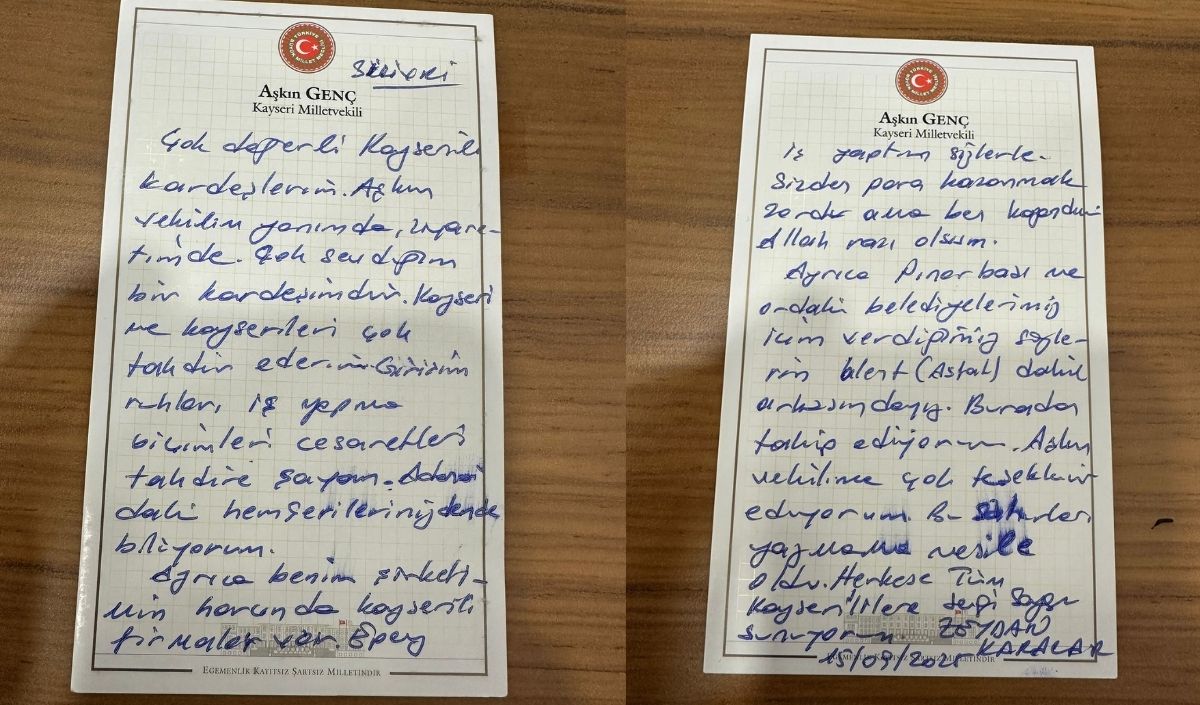 TÜRKİYE BÜYÜK MİLLET MECLİSİ
Silivri
Aşkın GENÇ
Kayseri Milletvekili
Çok değerli Kayserili
kardeşlerim. Aşkın
vekilin yanında, ziyare-
timde. Çok sevdiğim
bir kardeşimdir. Kayseri
ve kayserileri çok
takdir ederim. Girişim
ruhları, iş yapma
biçimleri cesaretleri
takdire şayan. Adana
daki hemşerilerinizdende
biliyorum.
Ayrıca benim şirketi-
min harcında kayserili
firmalar var. Epey
EGEMENLİK KAYITSIZ ŞARTSIZ MİLLETİNDİR
TÜRKİYE BÜYÜK MİLLET MECLİSİ
Aşkın GENÇ
Kayseri Milletvekili
iş yaptım sizlerle.
Sizden para kazanmak
zordur ama ben kazandım
Allah razı olsun.
Ayrıca Pınarbaşı ve
ordaki belediyelerimiz
için verdiğimiz sözle-
rin (Asfalt) dahil
arkasındayız. Buradan
takip ediyorum. Aşkın
vekilime çok teşekkür
ediyorum. Bu satırları
yazmama vesile
oldu. Herkese Tüm
Kayserililere sevgi saygı
sunuyorum ZEYDAN
KARALAR
15/09/2025
EGEMENLİK KAYITSIZ ŞARTSIZ MİLLETİNDİR